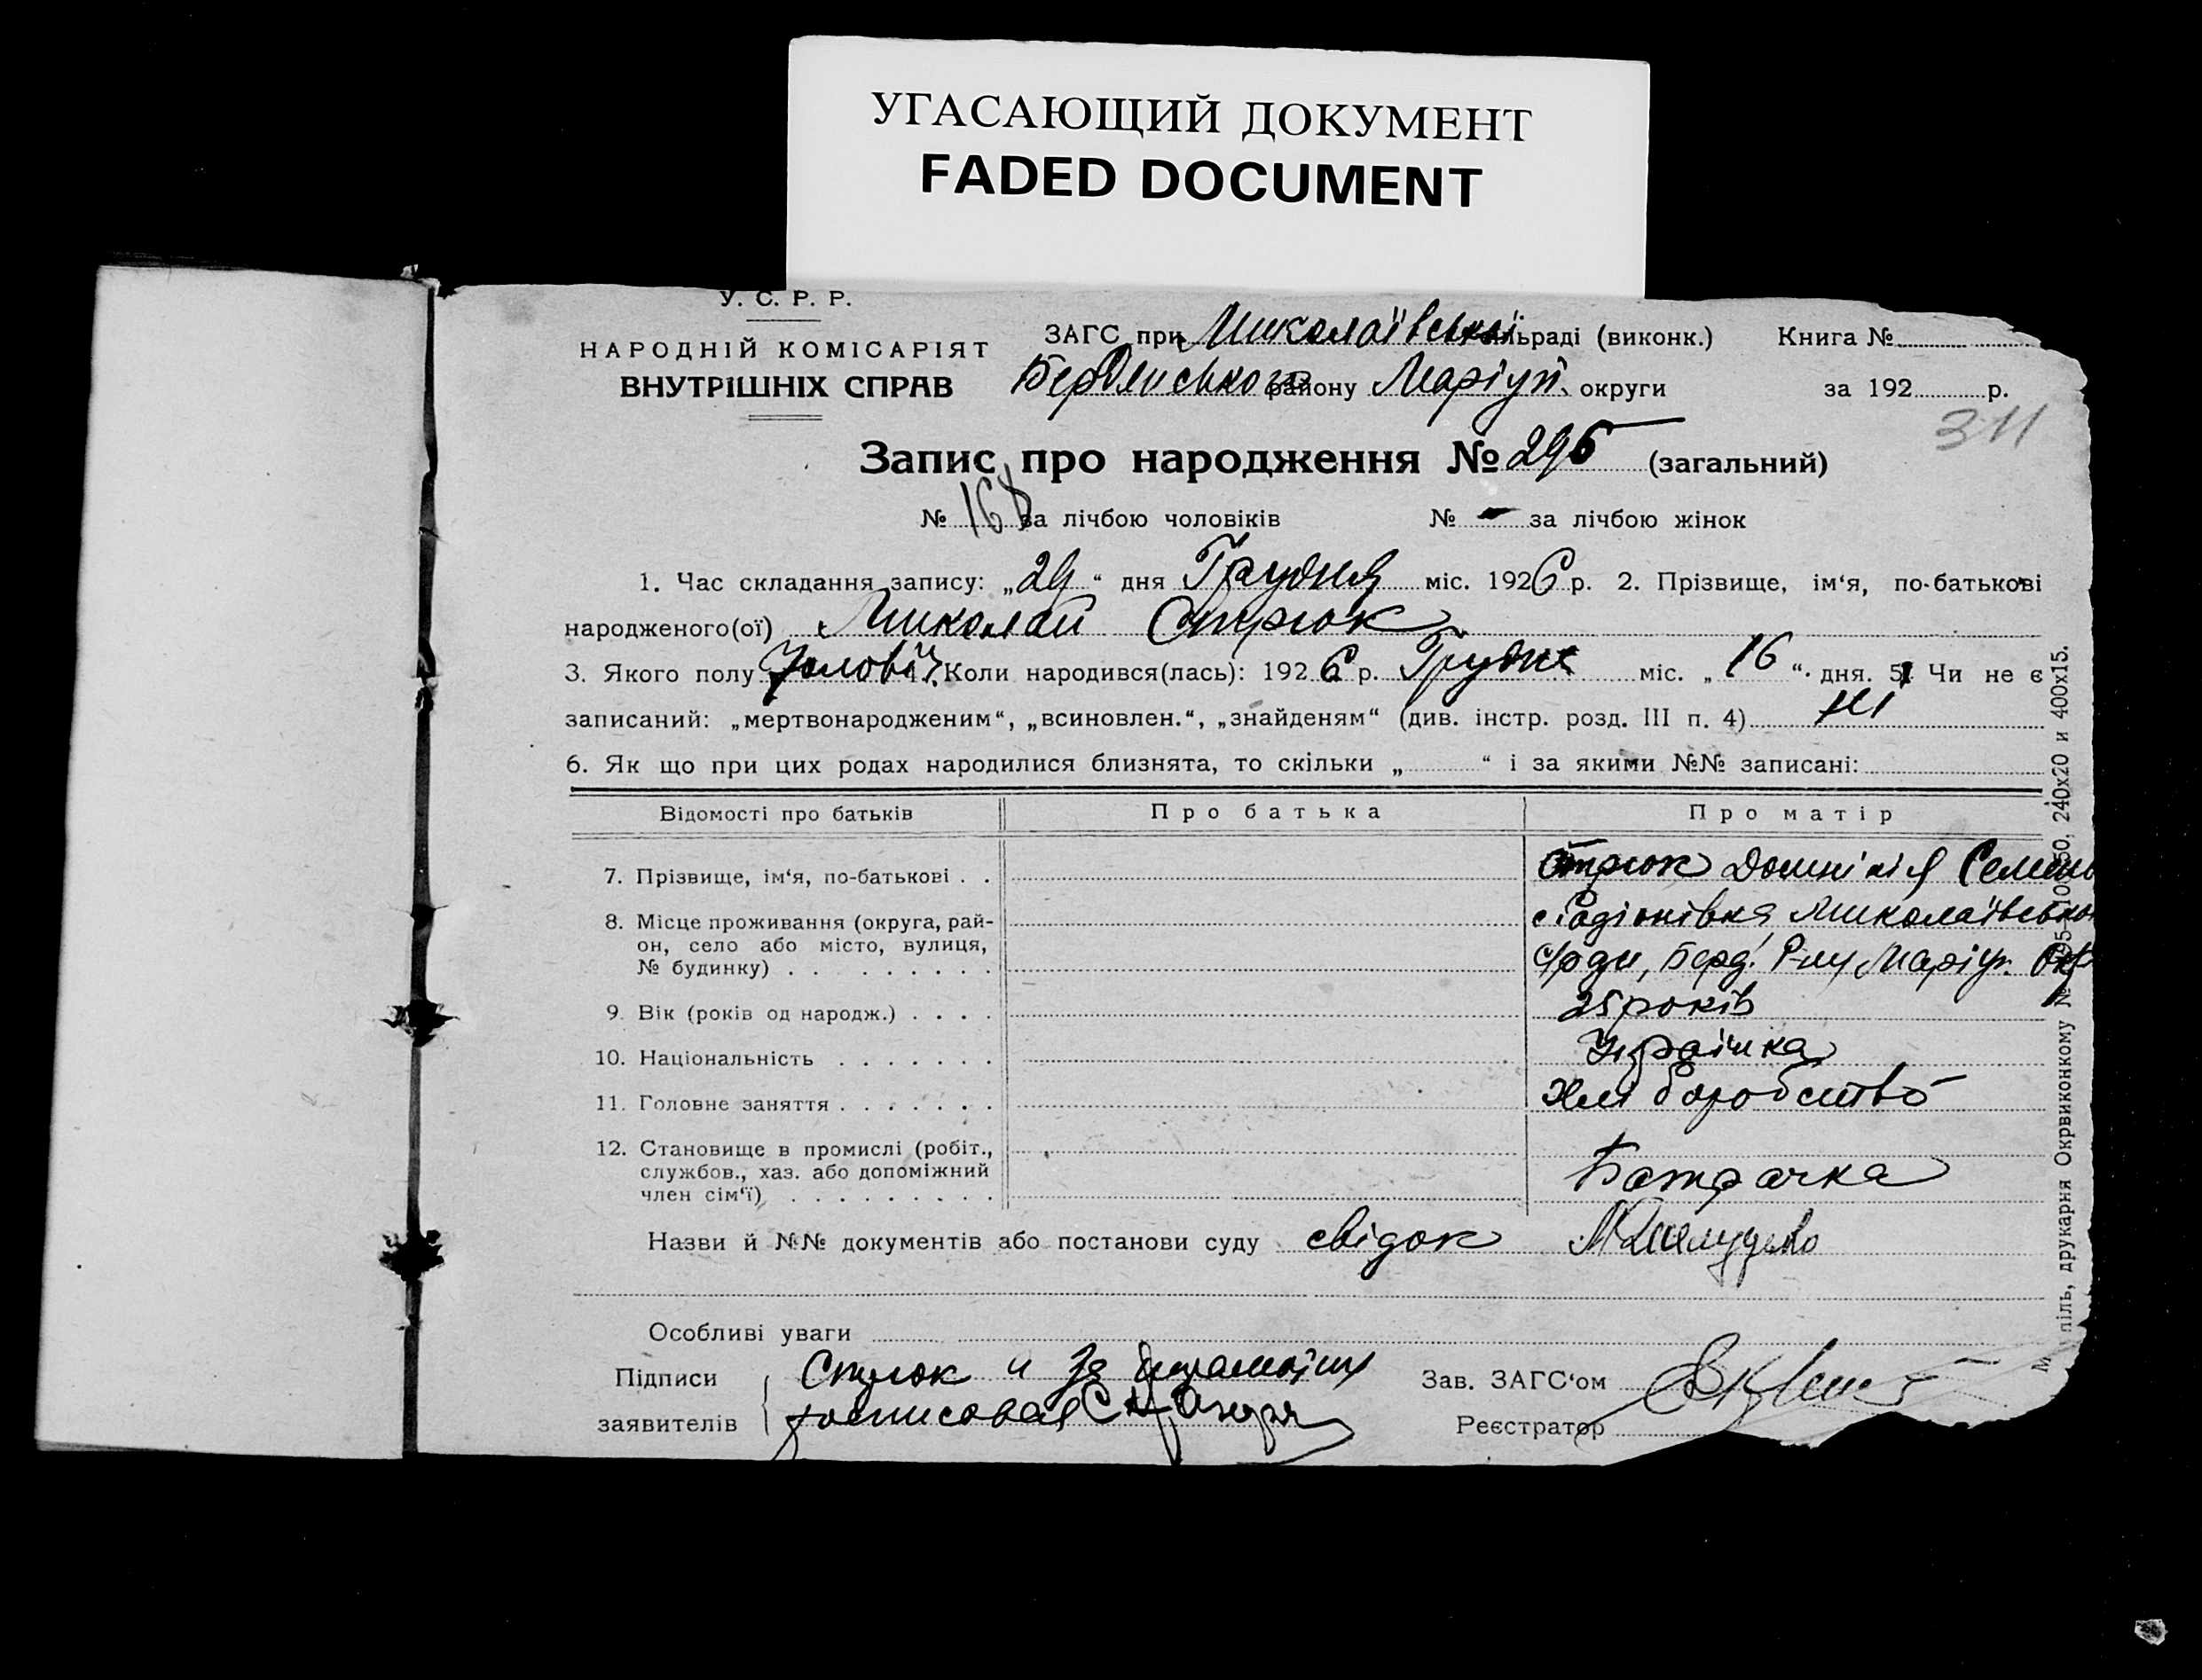 УГАСАЮЩИЙ ДОКУМЕНТ
FADED DOCUMENT
У. С. Р. Р.
НАРОДНІЙ КОМІСАРІЯТ
ВНУТРІШНІХ СПРАВ
ЗАГС при Миколаївській сільраді (виконк.) Книга №
Бердянського району Маріуп. округи за 192 р.
311
Запис про народження № 295 (загальний)
№ 168 за лічбою чоловіків № - за лічбою жінок
1. Час складання запису: „29“ дня Грудня міс. 1926 р. 2. Прізвище, ім‘я, по-батькові
народженого(ої) Миколай Стрюк
3. Якого полу Чоловіч. 4. Коли народився(лась): 1926 р. Грудня міс. „16“. дня. 5. Чи не є
записаний: „мертвонародженим“, „всиновлен.“, „знайденям“ (див. інстр. розд. III п. 4) Ні
6. Як що при цих родах народилися близнята, то скільки „ “ і за якими №№ записані:
Відомості про батьків Про батька Про матір
7. Прізвище, ім‘я, по-батькові . . Стрюк Домнікія Семень
8. Місце проживання (округа, рай- с. Радіонівка Миколаївської
он, село або місто, вулиця,
№ будинку) . . . . . . . . . с/ради, Берд. Р-ну Маріуп. Окр
9. Вік (років од народж.) . . . . 25 років
10. Національність . . . . . . . Українка
11. Головне заняття . . . . . . . Хліборобство
12. Становище в промислі (робіт.,
службов., хаз. або допоміжний Батрачка
член сім‘ї) . . . . . . . . .
Назви й №№ документів або постанови суду свідок
Особливі уваги
Підписи Стрюк а за
заявителів росписовая
Зав. ЗАГС‘ом
Реєстратор
М піль, друкарня Окрвиконкому № 240х20 и 400х15.